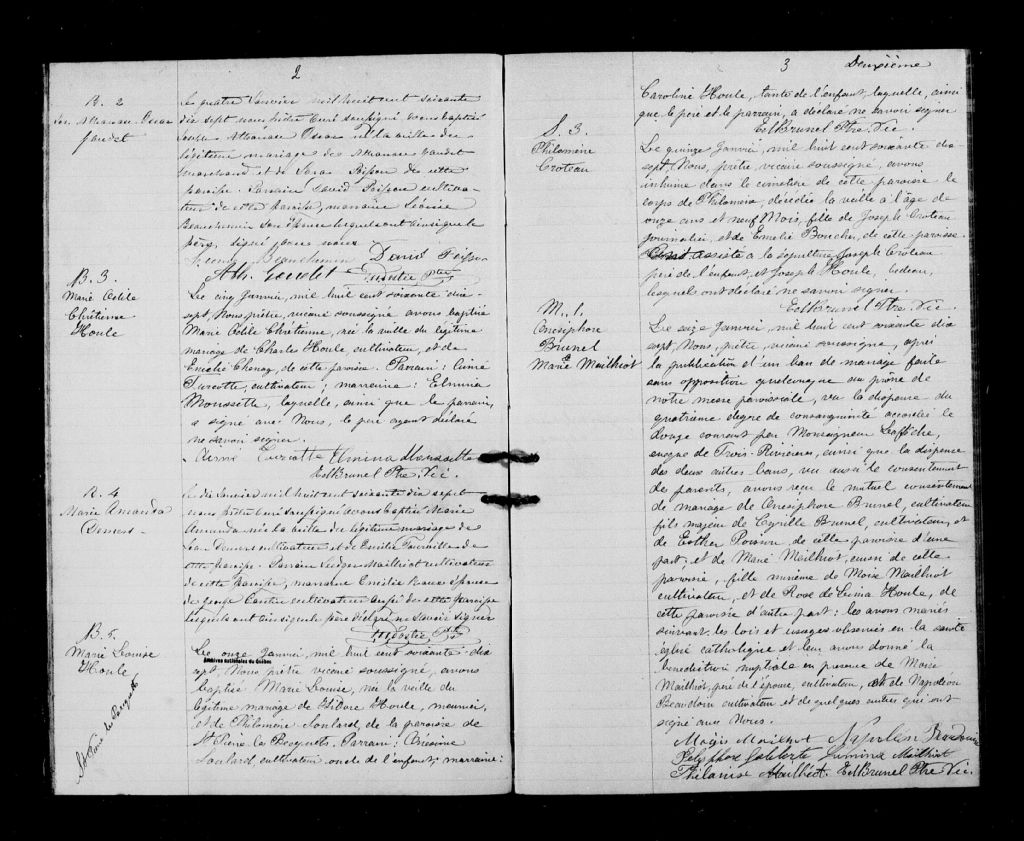 2
B. 2
Jos. Athanase Oscar
Gaudet
Le quatre Janvier mil huit cent soixante
dix sept nous prêtre curé soussigné avons baptisé
Joseph Athanase Oscar né la veille du
légitime mariage de Athanase Gaudet
marchand et de Sara Poisson de cette
paroisse. Parrain David Poisson cultiva-
teur de cette paroisse, marraine
Beauchemin son épouse lesquels ont ainsi que le
père, signé avec nous
Beauchemin David Poisson
Ath. Gaudet Ptre
B. 3.
Marie Odile
Chrétienne
Houle
Le cinq Janvier, mil huit cent soixante dix-
sept, Nous prêtre, vicaire soussigné avons baptisé
Marie Odile Chrétienne, née la veille du légitime
mariage de Charles Houle, cultivateur, et de
Emélie Chenay, de cette paroisse. Parrain: Aimé
Turcotte, cultivateur; marraine: Elmina
Moussette, laquelle, ainsi que le parrain,
a signé avec Nous, le père ayant déclaré
ne savoir signer.
Aimé Turcotte Elmina Moussette
Ed Brunel Ptre Vic.
B. 4
Marie Amanda
Demers
Le dix Janvier mil huit cent soixante dix sept
nous prêtre curé soussigné avons baptisé Marie
Amanda née la veille du légitime mariage de
Demers cultivateur et de Emilie Tourville de
cette paroisse. Parrain Ludger Mailhiot cultivateur
de cette paroisse, marraine Emilie épouse
de Joseph Cantin cultivateur aussi de cette paroisse
lesquels ont ainsi que le père déclaré ne savoir signer
Ptre
B. 5.
Marie Louise
Houle
St Pierre les Becquets
Le onze Janvier, mil huit cent soixante-dix
Archives nationales du Québec
sept, Nous, prêtre vicaire soussigné, avons
baptisé Marie Louise, née la veille du
légitime mariage de Isidore Houle, meunier,
et de Philomène Soulard, de la paroisse de
St Pierre les Becquets. Parrain: Onésime
Soulard, cultivateur oncle de l'enfant; marraine:
3 Deuxième
Caroline Houle, tante de l'enfant, laquelle, ainsi
que le père et le parrain, a déclaré ne savoir signer
Ed Brunel Ptre Vic.
S. 3.
Philomène
Croteau
Le quinze Janvier, mil huit cent soixante dix
sept, Nous, prêtre, vicaire soussigné, avons
inhumé dans le cimetière de cette paroisse le
corps de Philomène, décédée la veille à l'âge de
onze ans et neuf Mois, fille de Joseph Croteau
journalier, et de Emélie Boucher, de cette paroisse.
Ont assisté à la sépulture Joseph Croteau
père de l'enfant, et Joseph Houle, bedeau,
lesquels ont déclaré ne savoir signer.
Ed Brunel Ptre Vic.
M. 1.
Onésiphore
Brunel
&
Marie Mailhiot
Le seize Janvier, mil huit cent soixante dix
sept, Nous, prêtre, vicaire soussigné, après
la publication d'un ban de mariage faite
sans opposition quelconque au prône de
notre messe paroissiale, vu la dispense du
quatrième degré de consanguinité accordée le
douze courant par Monseigneur Laflèche,
évêque de Trois-Rivières, ainsi que la dispense
des deux autres bans, vu aussi le consentement
de parents, avons reçu le mutuel consentement
de mariage de Onésiphore Brunel, cultivateur,
fils majeur de Cyrille Brunel, cultivateur, et
de Esther Poisson, de cette paroisse d'une
part; et de Marie Mailhiot, aussi de cette
paroisse, fille mineure de Moïse Mailhiot
cultivateur, et de Rose de Lima Houle, de
cette paroisse d'autre part: les avons mariés
suivant les lois et usages observés en la sainte
église catholique et leur avons donné la
bénédiction nuptiale en présence de Moïse
Mailhiot, père de l'épouse, cultivateur, et de Napoléon
Beaudoin cultivateur et de quelques autres qui ont
signé avec Nous.
Moïse Mailhot Napoléon Beaudoin
Mailhiot
Mailhiot Ed Brunel Ptre Vic.